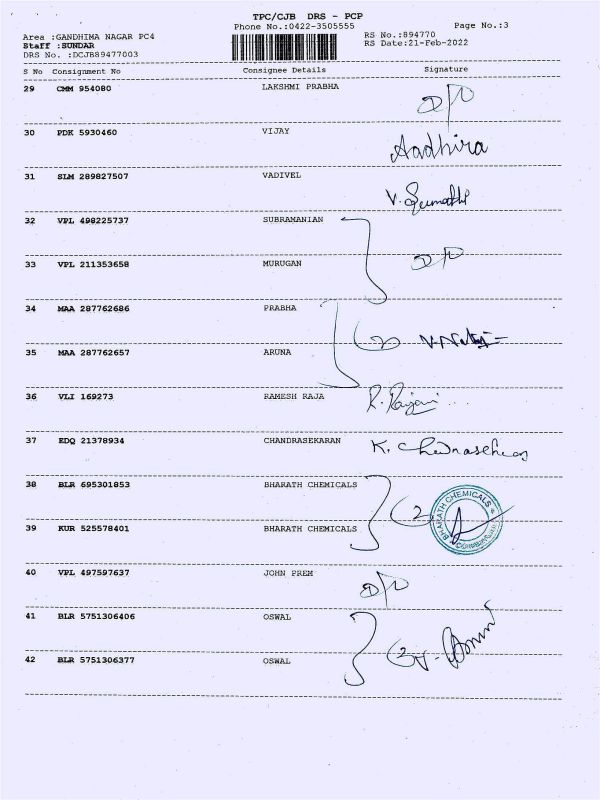 TPC/CJB DRS - PCP
Phone No.:0422-3505555
Page No.:3
Area :GANDHIMA NAGAR PC4
RS No.:894770
Staff :SUNDAR
RS Date:21-Feb-2022
DRS No. :DCJB89477003
S No Consignment No Consignee Details Signature
29 CMM 954080 LAKSHMI PRABHA D/D
30 PDK 5930460 VIJAY Aadhira
31 SLM 289827507 VADIVEL V. Sumathi
32 VPL 498225737 SUBRAMANIAN
33 VPL 211353658 MURUGAN D/D
34 MAA 287762686 PRABHA
35 MAA 287762657 ARUNA
36 VLI 169273 RAMESH RAJA R. Ranjani
37 EDQ 21378934 CHANDRASEKARAN K. Chandrasekaran
38 BLR 695301853 BHARATH CHEMICALS 2 BHARATH CHEMICALS
39 KUR 525578401 BHARATH CHEMICALS
40 VPL 497597637 JOHN PREM D/D
41 BLR 5751306406 OSWAL
42 BLR 5751306377 OSWAL 2